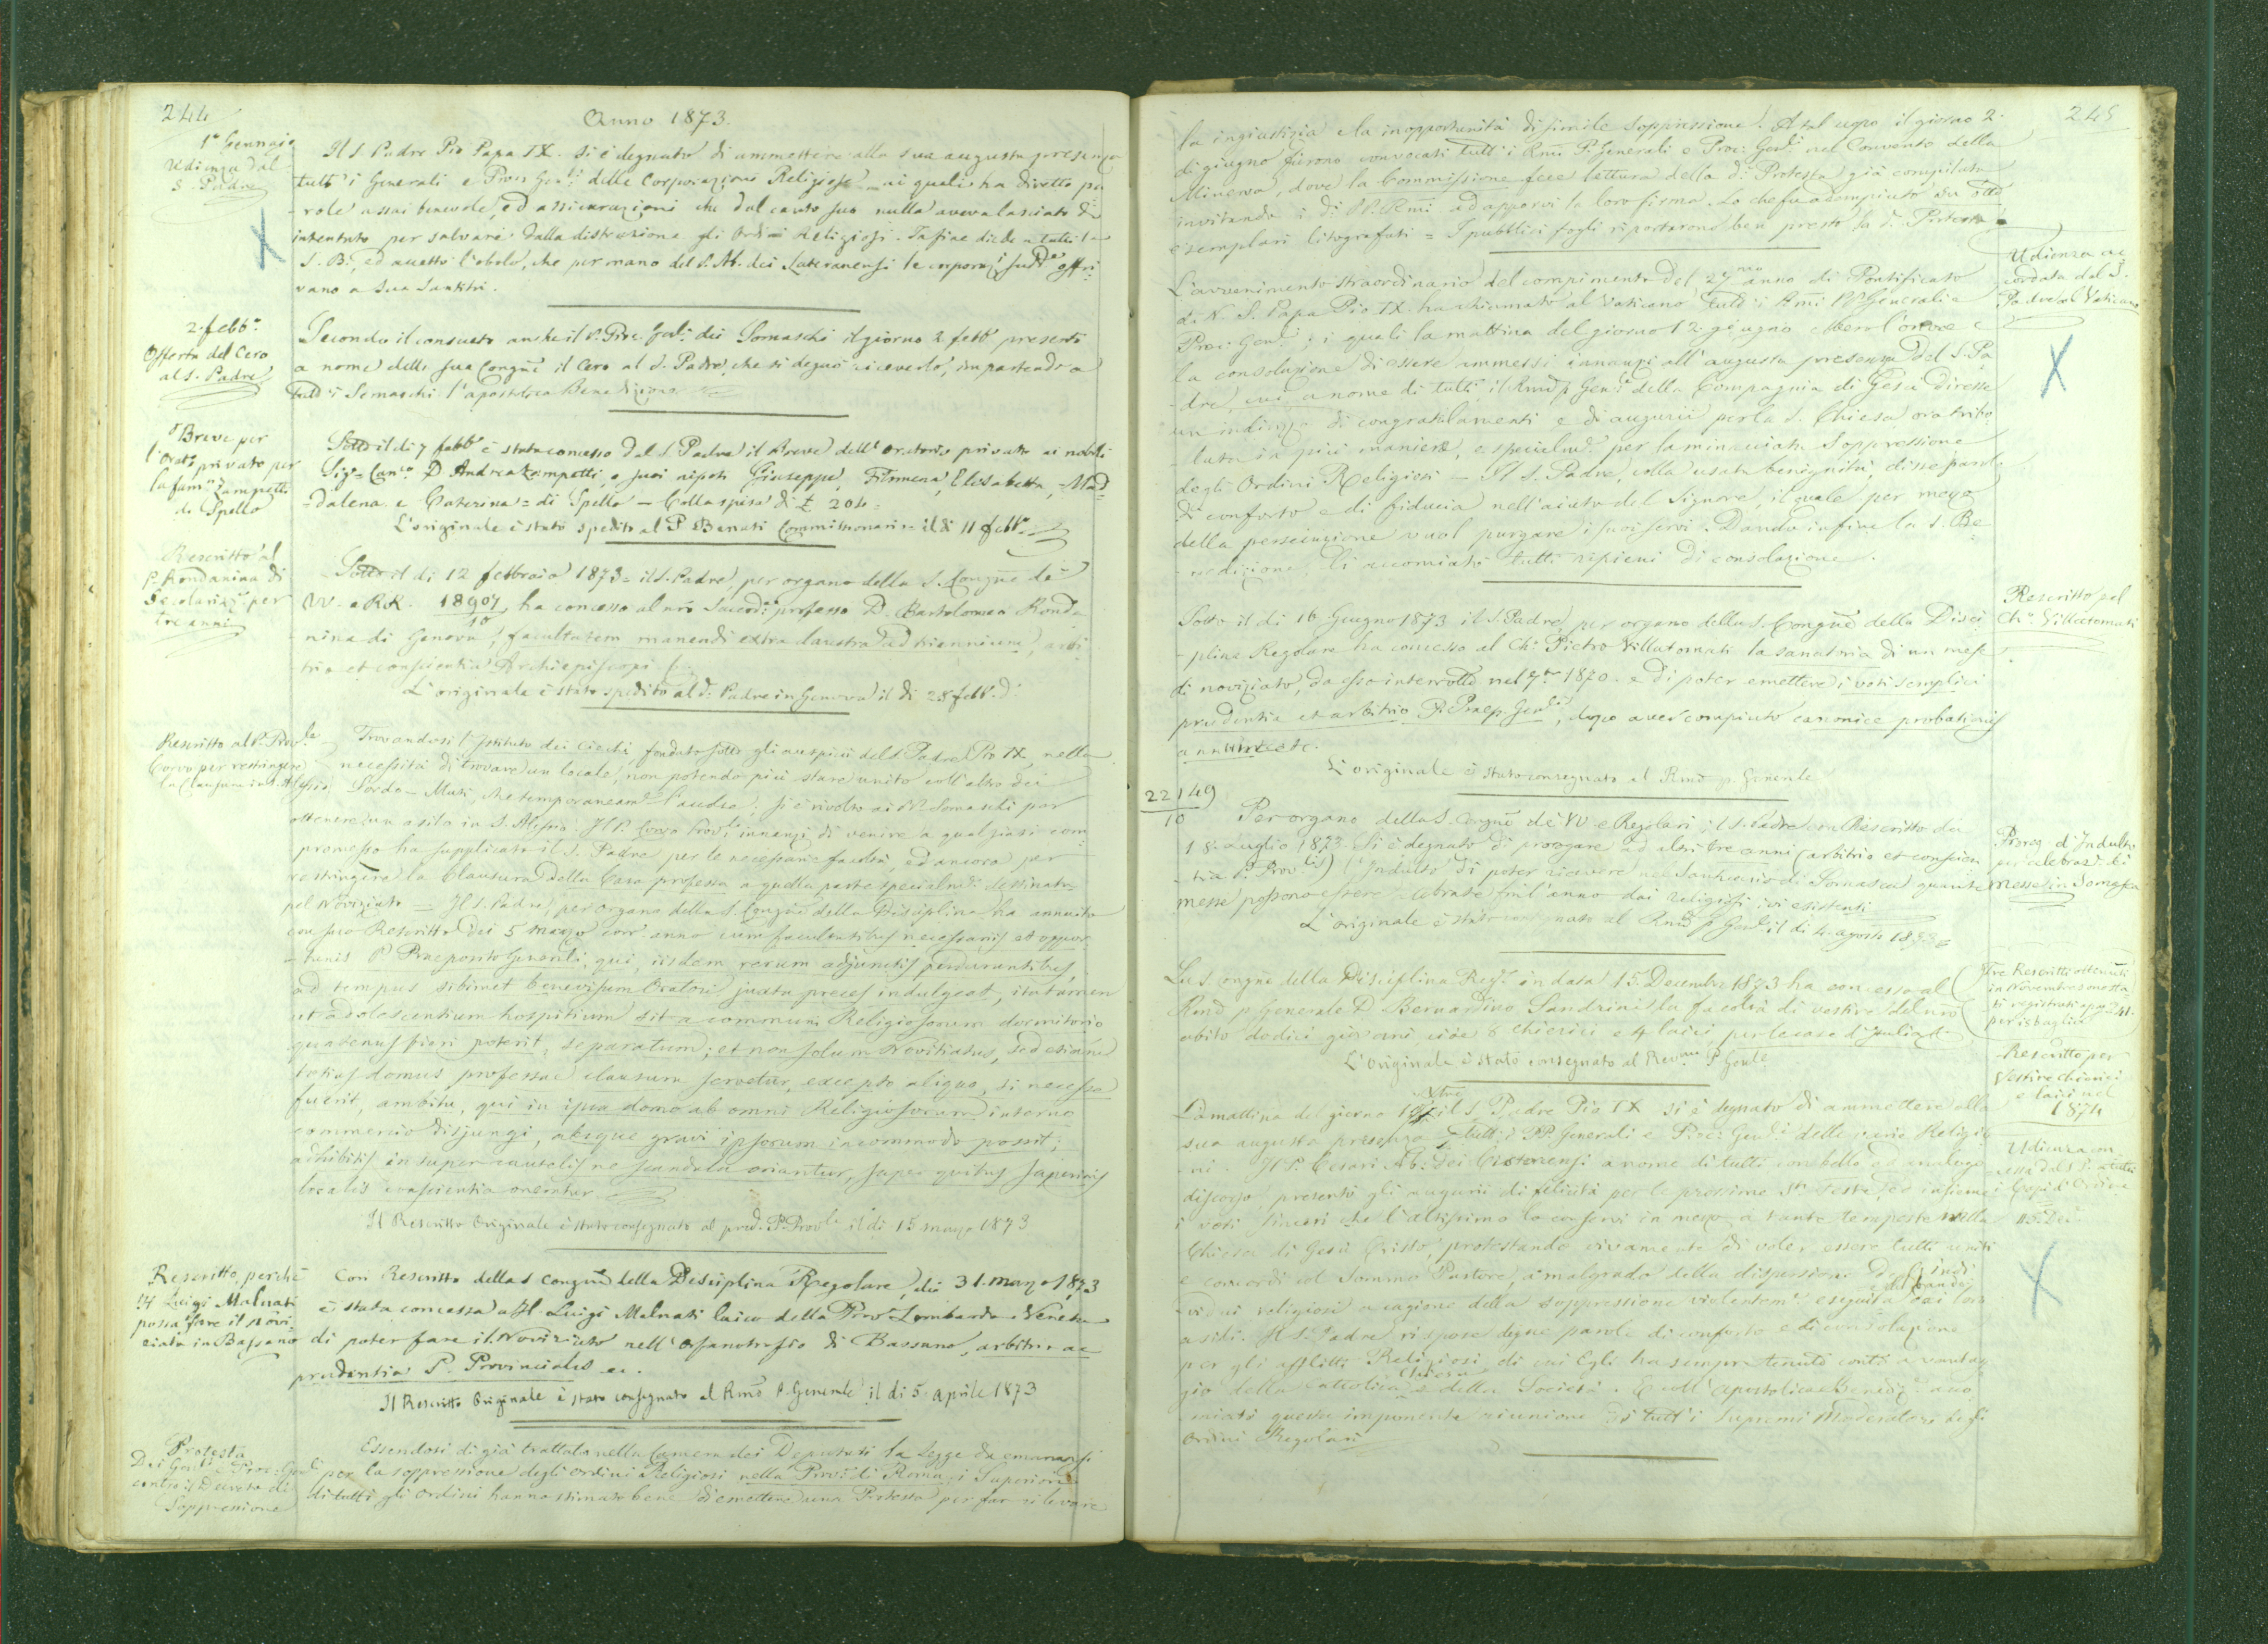 244
Anno 1873.
1º Gennaio
Udienza dal
S. Padre
Il S. Padre Pio Papa IX. si è degnato di ammettere alla sua augusta presenza
tutt' i Generali e Proc: Gen:li delle Corporazioni Religiose ai quali ha diretto pa
role assai benevole, ed assicurazioni che dal canto suo nulla aveva lasciato d'
intentato per salvare dalla distruzione gli Ordini Religiosi. Infine diede a tutti la
S. B:, ed accettò l'obolo, che per mano del P. Ab. dei Lateranensi le corporaz:i sud:e offri
vano a Sua Santità.
2. febb.º
Offerta del Cero
al S. Padre
Secondo il consueto anche il P. Proc. Gen:li dei Somaschi il giorno 2 febb.º presentò
a nome della sua Congñe il Cero al S. Padre, che si degnò riceverlo, impartendo a
tutt' i Somaschi l'apostolica Benedizione
Breve per
l'Orat.º privato per
la fam.ª Zampetti
di Spello
Sotto il di 7 febb.º è stato concesso dal S. Padre il Breve dell' Oratorio privato ai nobili
Sig.ri Can.co D. Andrea Zampetti, e suoi nipoti Giuseppe, Filomena, Elisabetta, Mad=
=dalena e Caterina = di Spello — Colla spesa di £ 204=
L'originale è stato spedito al P. Benati Commissionario = il di 11 febb.º
Rescritto al
P. Rondanina di
Secolarizz.e per
tre anni
Sotto il di 12 febbraio 1873 = il S. Padre, per organo della S. Congñe de'
VV. e RR. 18907/10, ha concesso al nro Sacerd:e professo D. Bartolomeo Ronda
nina di Genova, facultatem manendi extra claustra ad triennium, arbi
trio et conscientia Archiepiscopi
L'originale è stato spedito al d:º Padre in Genova il di 28 febb.º d:º
Rescritto al P. Prov.le
Corvo per restringere
la Clausura in S. Alessio
Trovandosi l'Istituto dei Ciechi fondato sotto gli auspicii del S. Padre Pio IX, nella
necessità di trovare un locale, non potendo più stare unito coll'altro dei
Sordo-Muti, che temporaneam:e l'aveva: si è rivolto ai PP. Somaschi per
ottenere un asilo in S. Alessio. Il P. Corvo Prov.le innanzi di venire a qualsiasi com
promesso ha supplicato il S. Padre per le necessarie facoltà, ed ancora per
restringere la Clausura della Casa professa a quella parte specialm:e destinata
pel Noviziato = Il S. Padre, per organo della S. Congñe della Disciplina ha annuito
con suo Rescritto dei 5 marzo corr: anno cum facultatibus necessariis et oppor
tunis P. Praeposito Generali, qui, iisdem rerum adjunctis perdurantibus,
ad tempus sibimet benevisum Oratori juxta preces indulgeat, ita tamen
ut adolescentium hospitium sit a communi Religiosorum dormitorio
quatenus fieri poterit, separatum; et non solum Novitiatus, sed etiam
totius domus professae clausura servetur, excepto aliquo, si necesse
fuerit, ambitu, qui in ipsa domo ab omni Religiosorum interno
commercio disjungi, absque gravi ipsorum incommodo possit;
adhibitis insuper cautelis ne scandala oriantur, super quibus superioris
localis conscientia oneretur
Il Rescritto Originale è stato consegnato al pred:º P. Prov.le il di 15 marzo 1873
Rescritto, perchè
il Luigi Malnati
possa fare il Novi
ziato in Bassano
Con Rescritto della S. Congñe della Disciplina Regolare, dei 31. marzo 1873
è stata concessa al Luigi Malnati laico della Prov.ª Lombardo-Veneta
di poter fare il Noviziato nell' Orfanotrofio di Bassano, arbitrio ac
prudentia P. Provincialis ec.
Il Rescritto Originale è stato consegnato al Rmõ P. Generale il di 5. aprile 1873
Protesta
Dei Gen:li e Proc: Gen:li
contro il Decreto di
Soppressione
Essendosi di già trattato nella Camera dei Deputati la legge da emanarsi
per la soppressione degli Ordini Religiosi nella Prov:ª di Roma, i Superiori
di tutti gli Ordini hanno stimato bene di emettere una Protesta per far rilevare
245
la ingiustizia e la inopportunità di simile soppressione. A tal uopo il giorno 2.
di giugno furono convocati tutt'i Rmi P. Generali e Proc: Gen:li nel Convento della
Minerva, dove la Commissione fece lettura della d:ª Protesta già compilata
invitando i d:i PP. Rmi ad apporvi la loro firma. Lo che fu adempiuto su otto
esemplari litografati = I pubblici fogli riportarono ben presto la d:ª Protesta.
Udienza ac
cordata dal S.
Padre al Vaticano
L'avvenimento straordinario del compimento del 27mo anno di Pontificato
di N. S. Papa Pio IX. ha chiamato al Vaticano tutt' i Rmi PP. Generali e
Proc: Gen:li; i quali la mattina del giorno 12. giugno ebbero l'onore e
la consolazione di essere ammessi innanzi all' augusta presenza del S. Pa
dre, cui a nome di tutti il Rmõ P. Gen:le della Compagnia di Gesù diresse
un indirizzo di congratulamenti e di augurii per la S. Chiesa ora tribo
lata in più maniere, e specialm:e per la minacciata Soppressione
degli Ordini Religiosi — Il S. Padre, colla usata benignità, disse parole
di conforto e di fiducia nell'aiuto del Signore, il quale per mezzo
della persecuzione vuol purgare i suoi servi. Dando infine la S. Be
nedizione, li accomiatò tutti ripieni di consolazione.
Rescritto pel
Ch.º Villatomati
Sotto il di 16 Giugno 1873 il S. Padre per organo della S. Congñe della Disci
plina Regolare ha concesso al Ch.º Pietro Villatomati la sanatoria di un mese
di noviziato, da esso interrotto nel 7bre 1870. e di poter emettere i voti semplici
prudentia et arbitrio P. Praep. Gen:lis, dopo aver compiuto canonice probationis
annum etc.
L'originale è stato consegnato al Rmõ P. Generale
22149
10
Per organo della S. Congñe dei VV. e Regolari; il S. Padre con Rescritto dei
18. Luglio 1873. Si è degnato di prorogare ad altri tre anni (arbitrio et conscien
tia P. Prov.lis) l'Indulto di poter ricevere nel Santuario di Somasca quante
messe possono essere celebrate fral'anno dai religiosi ivi esistenti
L'originale è stato consegnato al Rmõ P. Gen:le il di 4. agosto 1873
Prorog. d'Indulto
per celebraz: di
Messe in Somasca
Tre Rescritti ottenuti
in Novembre sono sta
ti registrati a pag. 241.
per isbaglio
La S. Congñe della Disciplina Reg:e in data 15. Decembre 1873 ha concesso al
Rmõ P. Generale D. Bernardino Sandrini la facoltà di vestire del nrõ
abito dodici giovani, cioè 8 chierici e 4 laici, per le case d'Italia
L'Originale è stato consegnato al Revmo P. Gen:le
Rescritto per
Vestire chierici
e laici nel
1874
La mattina del giorno il S. Padre Pio IX si è degnato di ammettere alla
sua augusta presenza tutt' i PP. Generali e Proc: Gen:li delle varie Religio
ni. Il P. Cesari Ab: dei Cisterciensi a nome di tutti con bello ed analogo
discorso presentò gli augurii di felicità per le prossime Ste Feste, ed insieme
i voti sinceri che l'altissimo lo conservi in mezzo a tante tempeste nella
Chiesa di Gesù Cristo, protestando vivamente di voler essere tutti uniti
e concordi col Sommo Pastore, a malgrado della dispersione degl' indi
vidui religiosi a cagione della soppressione violentem:e eseguita dai loro
asili. Il S. Padre rispose degne parole di conforto e di consolazione
per gli afflitti Religiosi di cui Egli ha sempre tenuto conto a vantag
gio della Chiesa Cattolica e della Società. E coll' Apostolica Benediz:e acco
miatò questa imponente riunione di tutt' i Supremi Moderatori degli
Ordini Regolari
Udienza con
cessa dal S. P. a tutti
i Capi d'Ordine